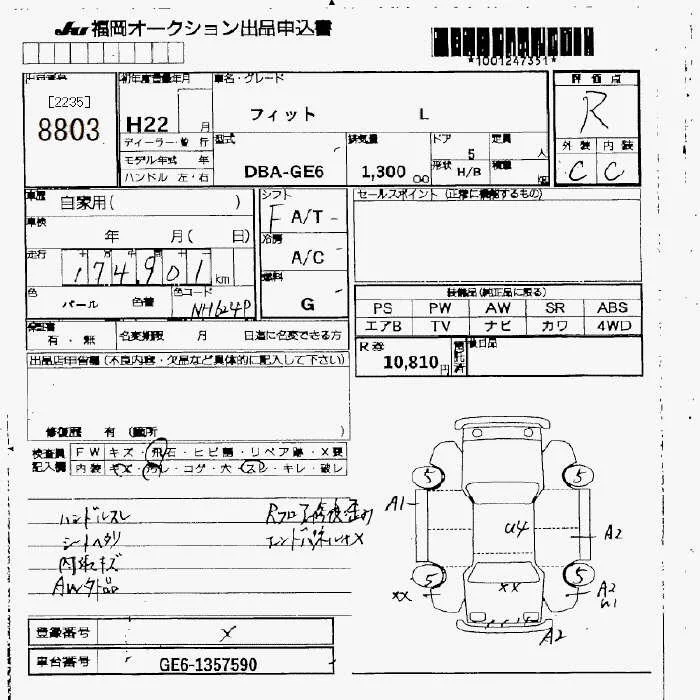 JU 福岡オークション出品申込書
*1001247351*
出品番号
[2235]
8803
初年度登録年月
H22 月
ディーラー・並行
モデル年式 年
ハンドル 左・右
車名・グレード
フィット L
型式
DBA-GE6
排気量
1,300 cc
ドア
5
形状 H/B
定員
人
積量
kg
評価点
R
外装 内装
C C
車歴 自家用( )
車検
年 月( 日)
走行
174,901 km
色
パール 色替
色コード
NH624P
シフト
F A/T -
冷房
A/C
燃料
G
セールスポイント (正常に機能するもの)
装備品(純正品に限る)
PS PW AW SR ABS
エアB TV ナビ カワ 4WD
保証書
有・無
名変期限 月 日迄に名変できる方
R券
10,810円
預託済
後日品
出品店申告欄 (不良内容・欠品など具体的に記入して下さい)
修復歴 有 (箇所 )
検査員記入欄
FW キズ・飛石・ヒビ割・リペア跡・X要
内装 キズ・汚レ・コゲ・穴・スレ・キレ・破レ
ハンドルスレ
シートヘタリ
内張キズ
AW外品
Rフロア修復歪み
エンドパネルX
5 5
A1
U4
A2
5 5
XX
XX
A2
W1
A2
登録番号 X
車台番号 GE6-1357590